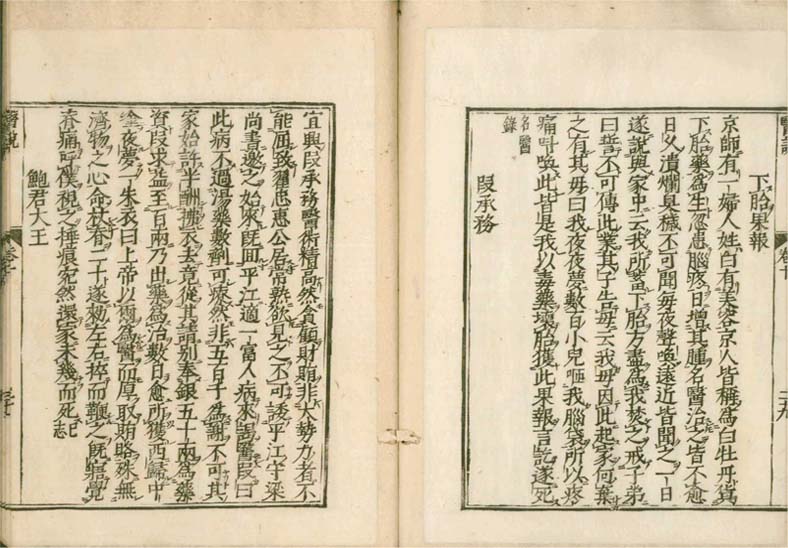 醫說
卷十
二十九
下胎果報
京師有一婦人姓白有美容京人皆稱爲白牡丹貨
下胎藥爲生忽患腦疼日增其腫名醫治之皆不愈
日久潰爛臭穢不可聞每夜聲喚遠近皆聞之一日
遂說與家中云我所蓄下胎方盡爲我焚之戒子弟
曰誓不可傳此業其子告母云我母因此起家何棄
之有其母曰我夜夜夢數百小兒咂我腦袋所以疼
痛叫喚此皆是我以毒藥壞胎獲此果報言訖遂死
名醫
錄
段承務
宜興段承務醫術精高然貪顧財賄非大勢力者不
能屈致翟忠惠公居常熟欲見之不可諉平江守梁
尚書邀之始來旣回平江適一富人病來謁醫段曰
此病不過湯藥數劑可療然非五百千爲謝不可其
家始許半酬拂衣去竟從其請別奉銀五十兩爲藥
資段求益至百兩乃出藥爲治數日愈所獲西歸中
塗夜夢一朱衣曰上帝以爾爲醫而厚取賄賂殊無
濟物之心命杖脊二十遂敕左右捽而鞭之旣寤覺
脊痛呼僕視之捶痕宛然還家未幾而死
鮑君大王
醫說
卷十
三十